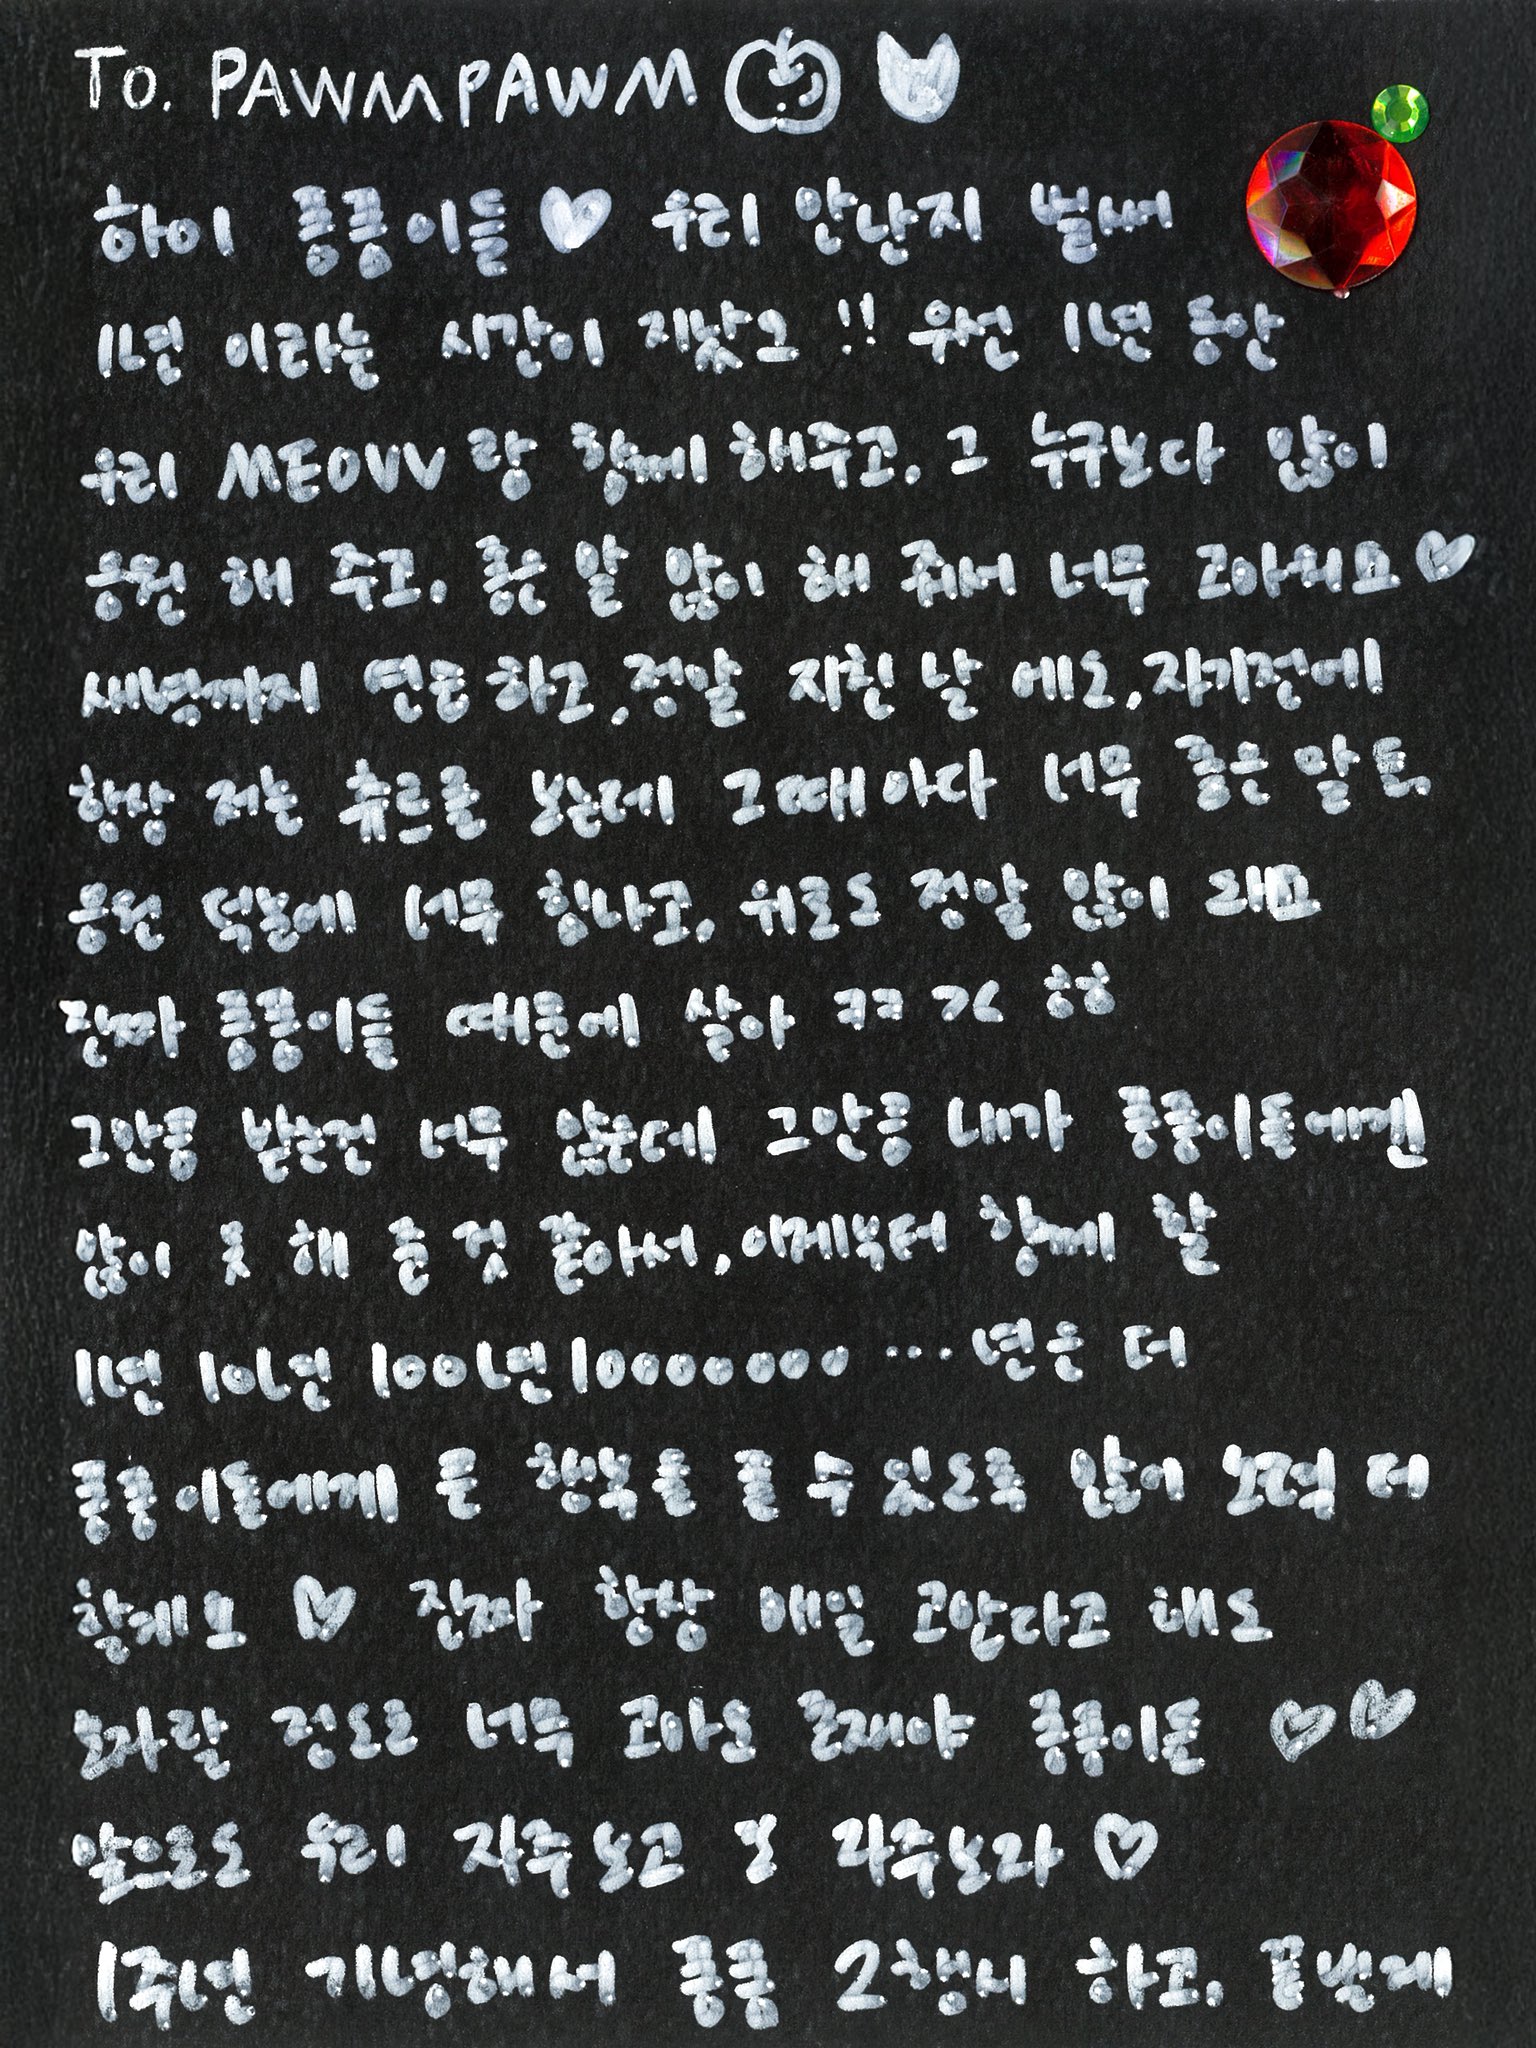 To. PAWMPAWM
하이 퐁퐁이들 ♡ 우리 만난지 벌써
1년 이라는 시간이 지났고 !! 우선 1년 동안
우리 MEOVV 랑 함께 해주고. 그 누구보다 많이
응원 해 주고. 좋은 말 많이 해 줘서 너무 고마워요 ♡
새벽까지 연습하고. 정말 지친 날 에도. 자기전에
항상 저는 츄르를 보는데 그때마다 너무 좋은 말 들,
응원 덕분에 너무 힘나고. 위로도 정말 많이 돼요
진짜 퐁퐁이들 때문에 살아 ㅋㅋ ㄱㅅ ㅎㅎ
그만큼 받는건 너무 많은데 그만큼 내가 퐁퐁이들에겐
많이 못 해 준 것 같아서, 이제부터 함께 할
1년 10년 100년 10000000 ... 년은 더
퐁퐁이들에게 큰 행복을 줄 수 있도록 많이 노력 더
할게요 ♡ 진짜 항상 매일 고맙다고 해도
모자랄 정도로 너무 고마운 존재야 퐁퐁이들 ♡♡
앞으로도 우리 자주보고 또 자주보자 ♡
1주년 기념해서 퐁퐁 2행시 하고. 끝낼게